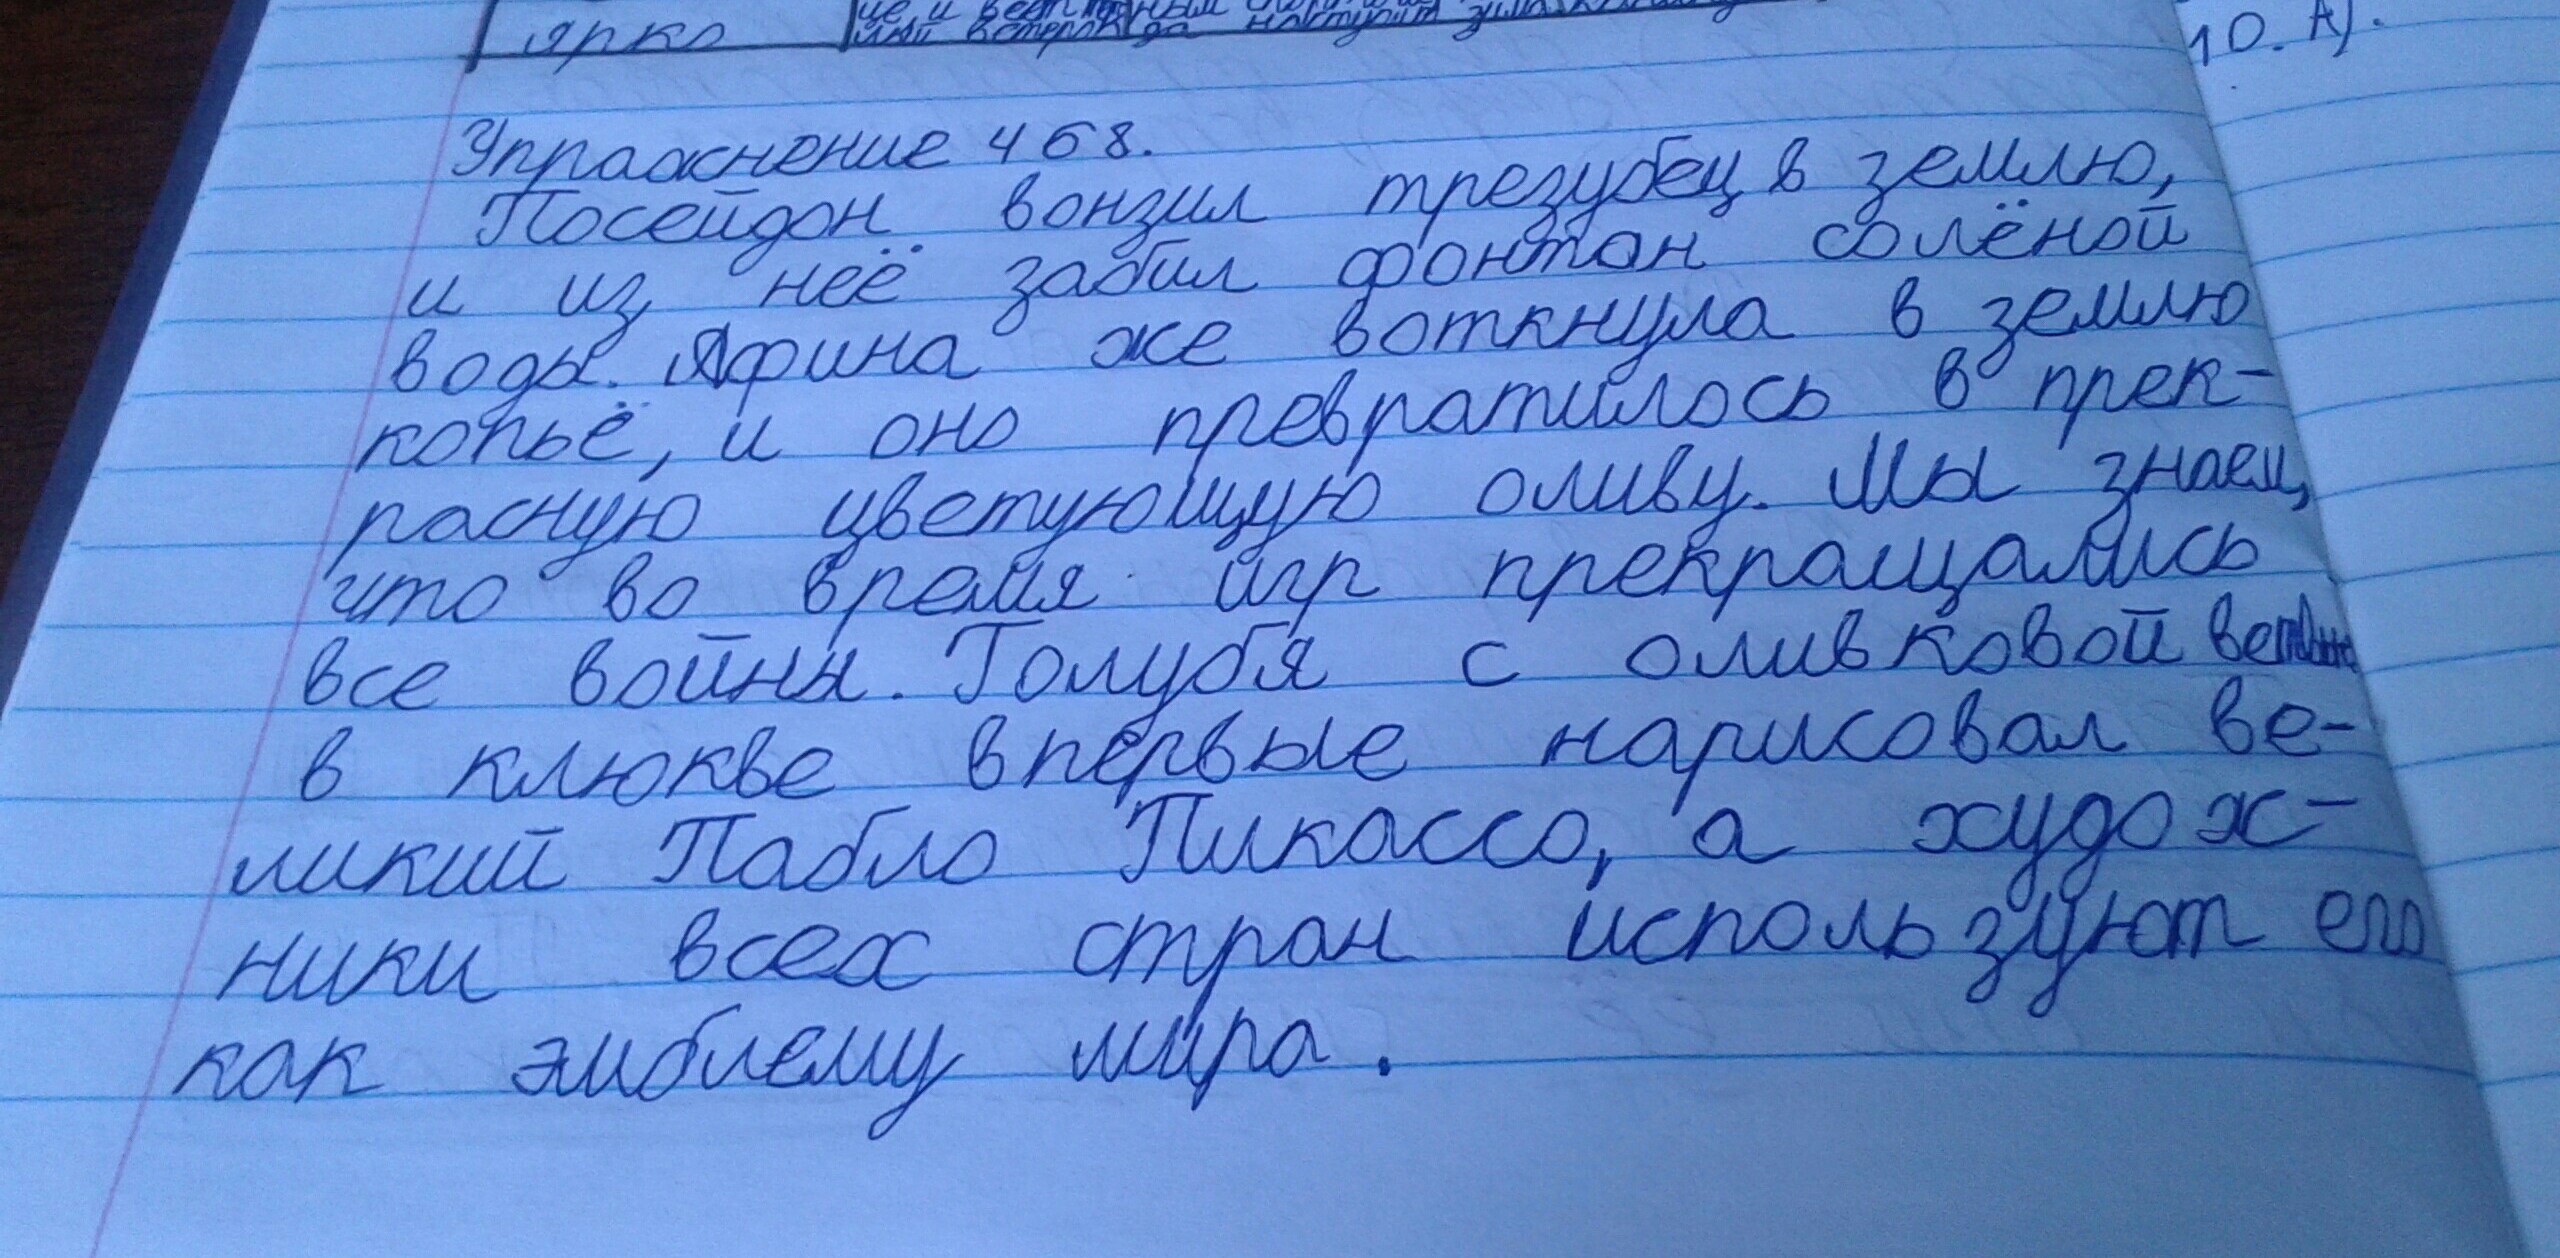 ярко
10. А).
Упражнение 468.
Посейдон вонзил трезубец в землю,
и из неё забил фонтан солёной
воды. Афина же воткнула в землю
копьё, и оно превратилось в прек-
расную цветующую оливу. Мы знаем,
что во время игр прекращались
все войны. Голубя с оливковой
в клюкве впервые нарисовал ве-
ликий Пабло Пикассо, а худож-
ники всех стран используют его
как эмблему мира.